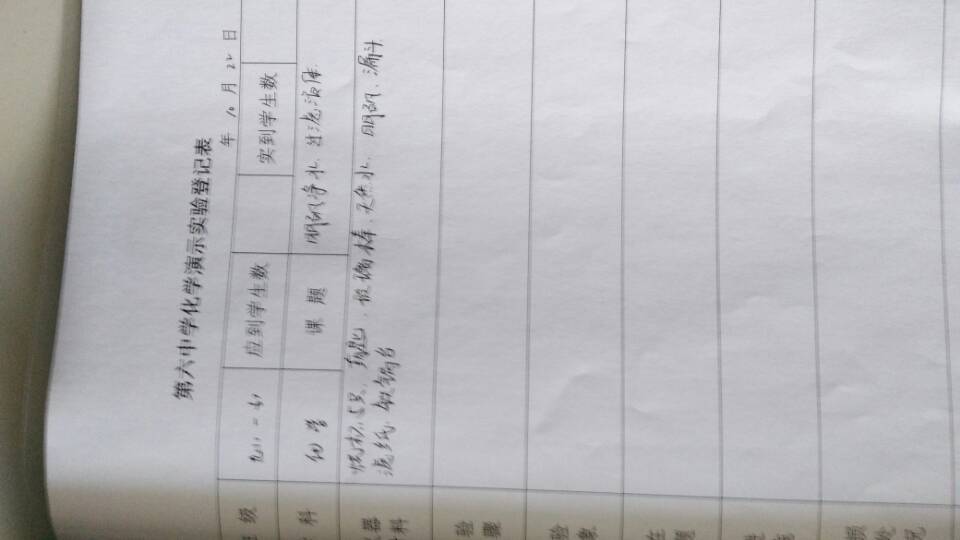 第六中学化学演示实验登记表
年 10 月 22 日
级 应到学生数 实到学生数
科 化学 课题 明矾净水、过滤液体
器 烧杯 药匙、玻璃棒、天然水、明矾、漏斗
料 滤纸、铁架台
验
骤
验
象
在
题